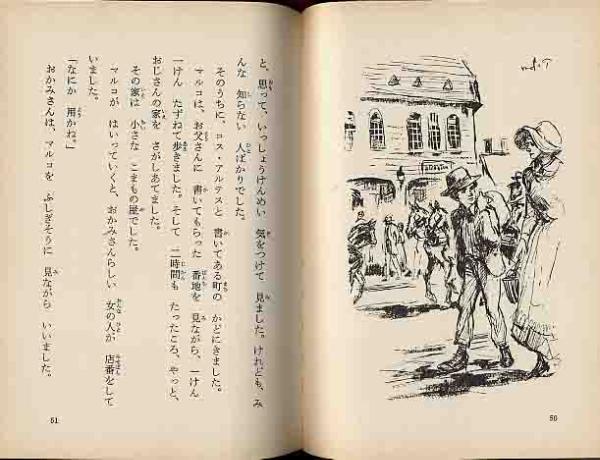 と、思って、いっしょうけんめい 気をつけて 見ました。けれども、み
んな 知らない 人ばかりでした。
そのうちに、ロス・アルテスと 書いてある町の かどにきました。
マルコは、お父さんに 書いてもらった 番地を 見ながら、一けん
一けん たずねて歩きました。そして 二時間も たったころ、やっと、
おじさんの家を さがしあてました。
その家は 小さな こまもの屋でした。
マルコが はいっていくと、おかみさんらしい 女の人が 店番をして
いました。
「なにか 用かね。」
おかみさんは、マルコを ふしぎそうに 見ながら いいました。
51
50